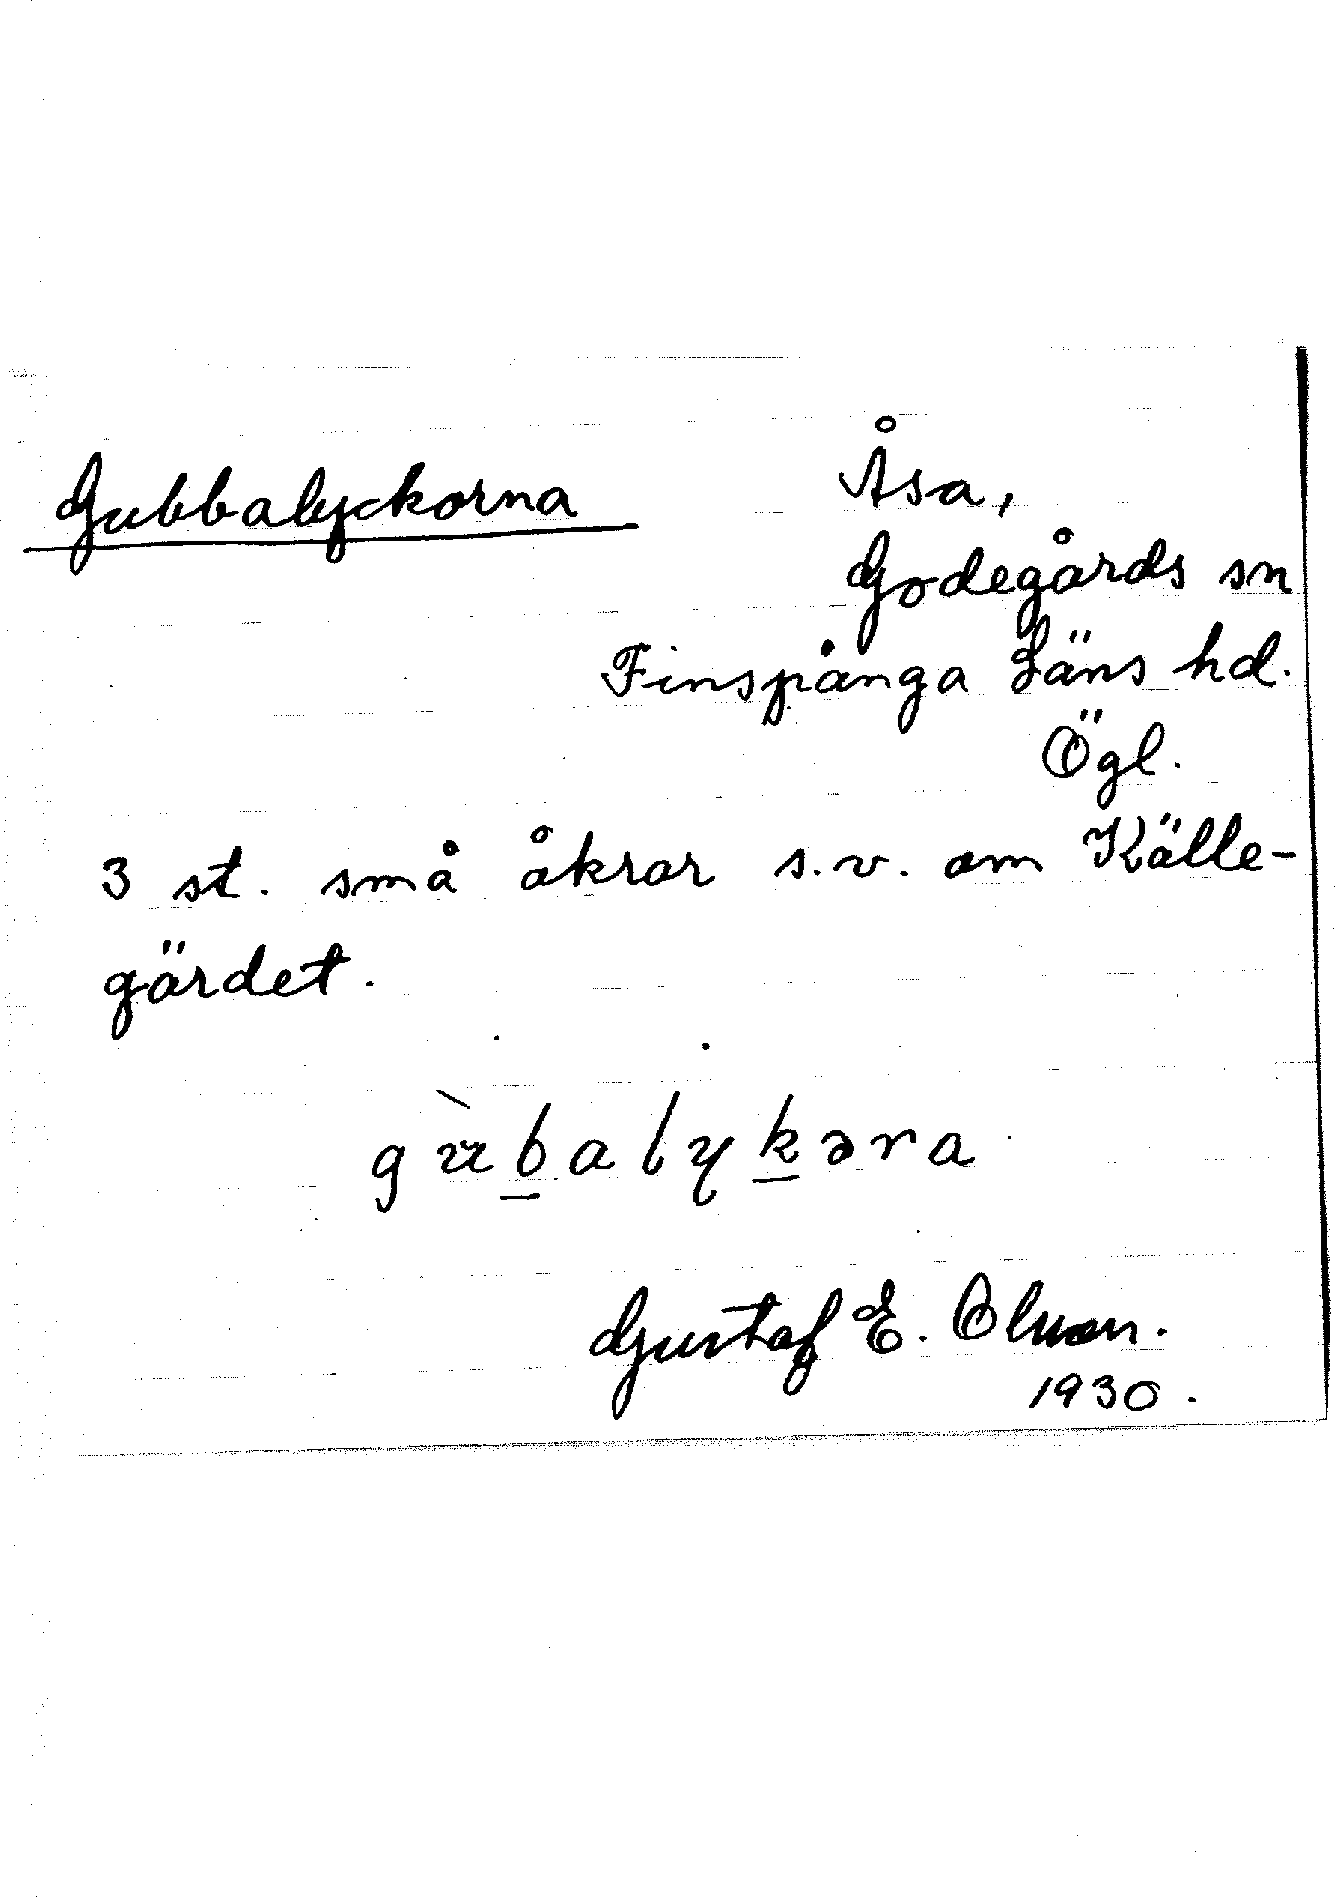 Gubbalyckorna
Åsa,
Godegårds sn
Finspånga Läns hd.
Ögl.
3 st. små åkrar s.v. om Källe-
gärdet.
gùbalykəra
Gustaf E. Olsson.
1930.